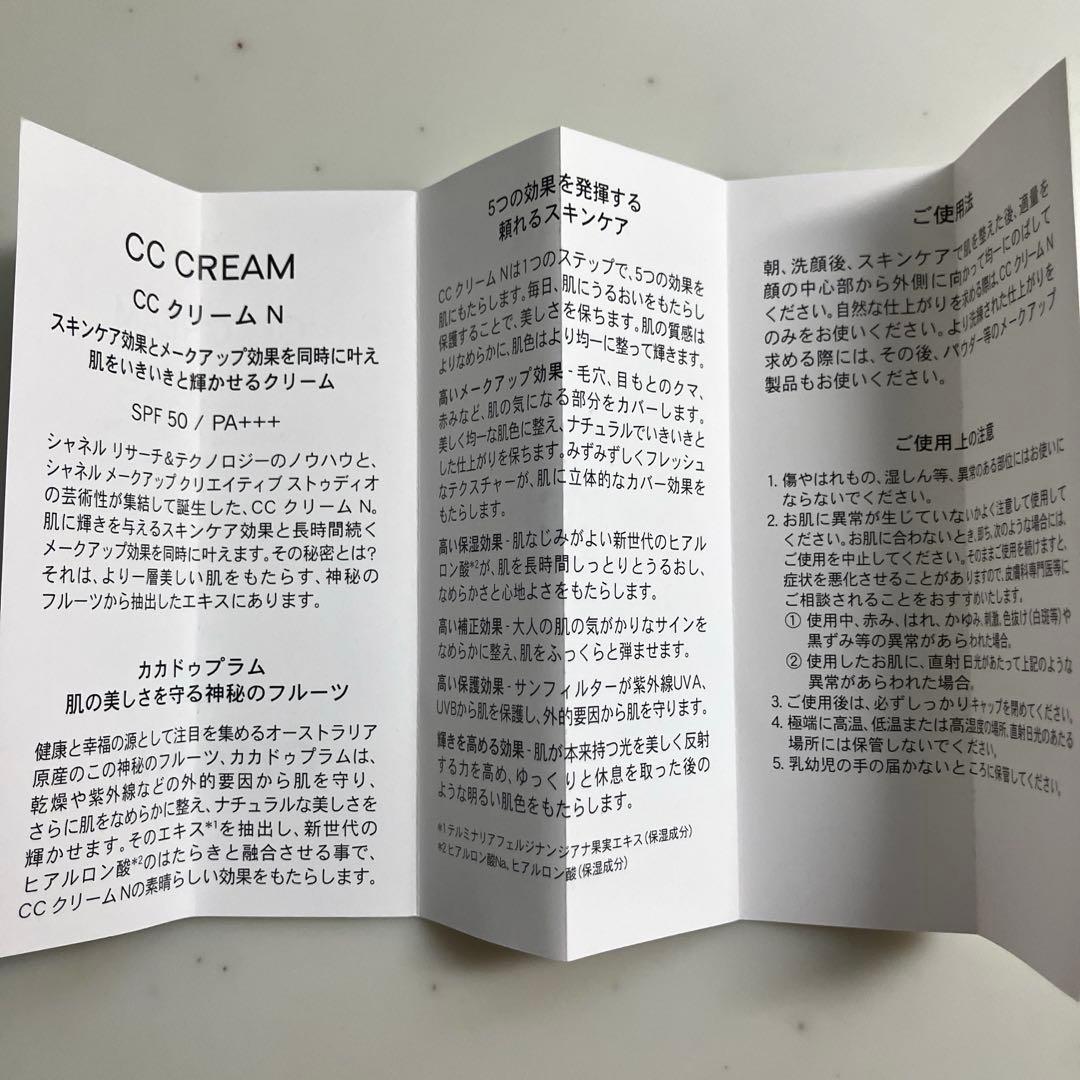 CC CREAM
CC クリーム N
スキンケア効果とメークアップ効果を同時に叶え
肌をいきいきと輝かせるクリーム
SPF 50 / PA+++
シャネル リサーチ&テクノロジーのノウハウと、
シャネル メークアップ クリエイティブ ストゥディオ
の芸術性が集結して誕生した、CC クリーム N。
肌に輝きを与えるスキンケア効果と長時間続く
メークアップ効果を同時に叶えます。その秘密とは?
それは、より一層美しい肌をもたらす、神秘の
フルーツから抽出したエキスにあります。
カカドゥプラム
肌の美しさを守る神秘のフルーツ
健康と幸福の源として注目を集めるオーストラリア
原産のこの神秘のフルーツ、カカドゥプラムは、
乾燥や紫外線などの外的要因から肌を守り、
さらに肌をなめらかに整え、ナチュラルな美しさを
輝かせます。そのエキス*1を抽出し、新世代の
ヒアルロン酸*2のはたらきと融合させる事で、
CC クリーム Nの素晴らしい効果をもたらします。
5つの効果を発揮する
頼れるスキンケア
CC クリーム Nは1つのステップで、5つの効果を
肌にもたらします。毎日、肌にうるおいをもたらし
保護することで、美しさを保ちます。肌の質感は
よりなめらかに、肌色はより均一に整って輝きます。
高いメークアップ効果 - 毛穴、目もとのクマ、
赤みなど、肌の気になる部分をカバーします。
美しく均一な肌色に整え、ナチュラルでいきいきと
した仕上がりを保ちます。みずみずしくフレッシュ
なテクスチャーが、肌に立体的なカバー効果を
もたらします。
高い保湿効果 - 肌なじみがよい新世代のヒアル
ロン酸*2が、肌を長時間しっとりとうるおし、
なめらかさと心地よさをもたらします。
高い補正効果 - 大人の肌の気がかりなサインを
なめらかに整え、肌をふっくらと弾ませます。
高い保護効果 - サンフィルターが紫外線UVA、
UVBから肌を保護し、外的要因から肌を守ります。
輝きを高める効果 - 肌が本来持つ光を美しく反射
する力を高め、ゆっくりと休息を取った後の
ような明るい肌色をもたらします。
*1 テルミナリアフェルジナンジアナ果実エキス(保湿成分)
*2 ヒアルロン酸Na、ヒアルロン酸(保湿成分)
ご使用法
朝、洗顔後、スキンケアで肌を整えた後、適量を
顔の中心部から外側に向かって均一にのばして
ください。自然な仕上がりを求める際は、CC クリーム N
のみをお使いください。より洗練された仕上がりを
求める際には、その後、パウダー等のメークアップ
製品もお使いください。
ご使用上の注意
1. 傷やはれもの、湿しん等、異常のある部位にはお使いに
ならないでください。
2. お肌に異常が生じていないかよく注意して使用して
ください。お肌に合わないとき、即ち、次のような場合には、
ご使用を中止してください。そのままご使用を続けますと、
症状を悪化させることがありますので、皮膚科専門医等に
ご相談されることをおすすめいたします。
① 使用中、赤み、はれ、かゆみ、刺激、色抜け(白斑等)や
黒ずみ等の異常があらわれた場合。
② 使用したお肌に、直射日光があたって上記のような
異常があらわれた場合。
3. ご使用後は、必ずしっかりキャップを閉めてください。
4. 極端に高温、低温または高湿度の場所、直射日光のあたる
場所には保管しないでください。
5. 乳幼児の手の届かないところに保管してください。